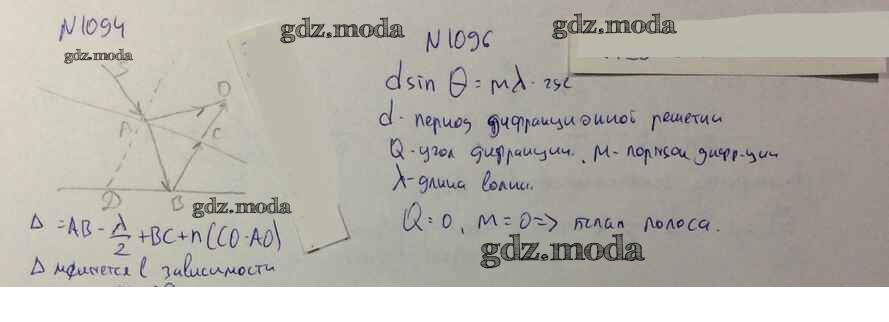 N1094
gdz.moda
S
O
A
C
D
B
gdz.moda
Δ = AB - λ/2 + BC + n(CO-AO)
Δ меняется в зависимости
gdz.moda
N1096
gdz.moda
d sin θ = mλ. где
d - период дифракционной решетки
Q - угол дифракции. м - порядок дифр-ции
λ - длина волны.
Q = 0, м = 0 => полоса.
gdz.moda